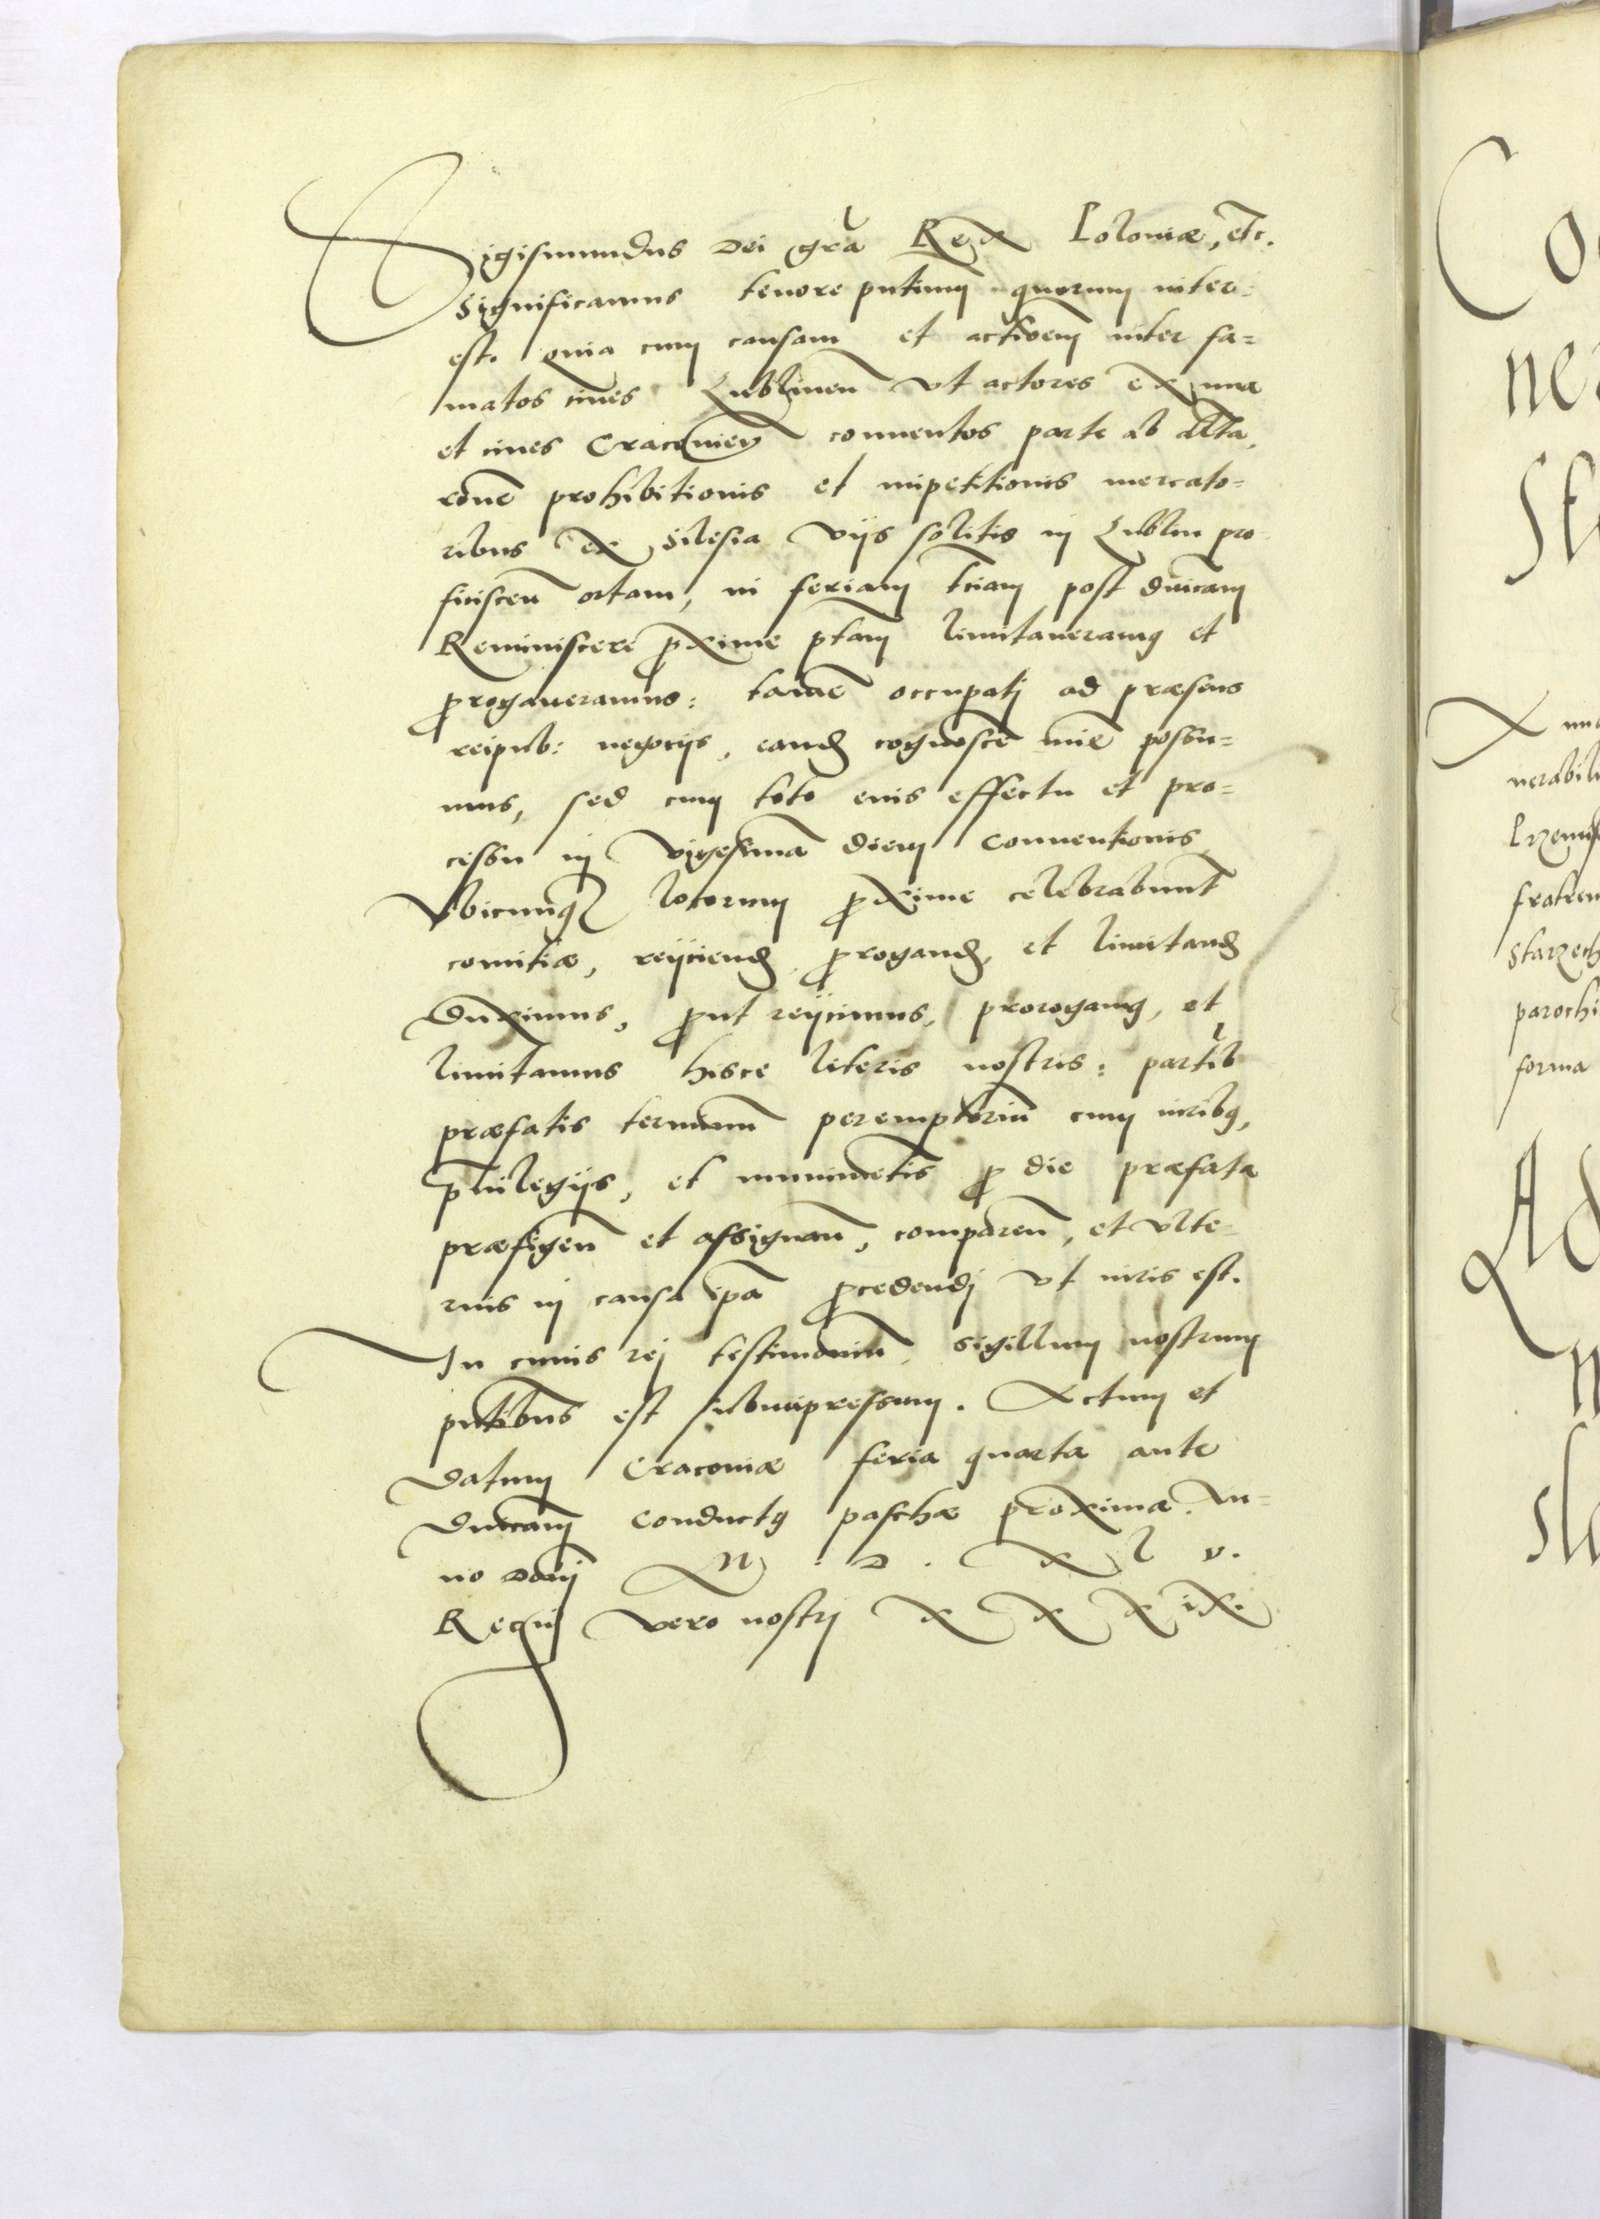 Sigismundus Dei gr̃a Rex Poloniæ, etc.
Significamus tenore pñtium quorum inter-
est. quia cum causam et actioẽm inter fa=
matos ciues Lublineñ vt actores ex una
et ciues Cracouieñ conuentos parte ab altã,
rõne prohibitionis et impetitionis mercato=
ribus ex Silesia viis solitis in Lublin pro-
ficisceñ ortam, in feriam t̃ciam post dñicam
Reminiscere proxime p̃ta͂m limitaueramꝰ et
prorogaueramus: tamẽ occupati ad præsens
reipub: negocijs, eand̃ cognoscẽ nõ possu=
mus, sed cum toto eius effectu et pro=
cessu in vigesimã diem conuentionis
Vbicunqꝫ locorum proxime celebrabunt̃
comitiæ, reijciend̃ prorogand̃, et limitand̃
duximus, prout reijcimus, prorogamꝰ, et
limitamus hisce literis nostris: partib
præfatis terminũ peremptoriũ cum iuribꝰ,
p̃uilegijs, et munimẽtis pro die præfata
præfigeñ et assignañ, compareñ, et vlte-
rius in causa ip̃a procedendi vt iuris est.
In cuius rei testimoniũ sigillum nostrum
pñtibus est subimpressum. Actum et
Datum Cracouiæ feria quarta ante
Dñicam Conductꝰ paschæ proxima. An=
no Dom̃j M. D. XL v.
Regni vero nostri XXXiX.
Co
ne
Sta
X una
nerabili
Przemis
fratrem
Starzech
parochi
forma
Ad
n
sla